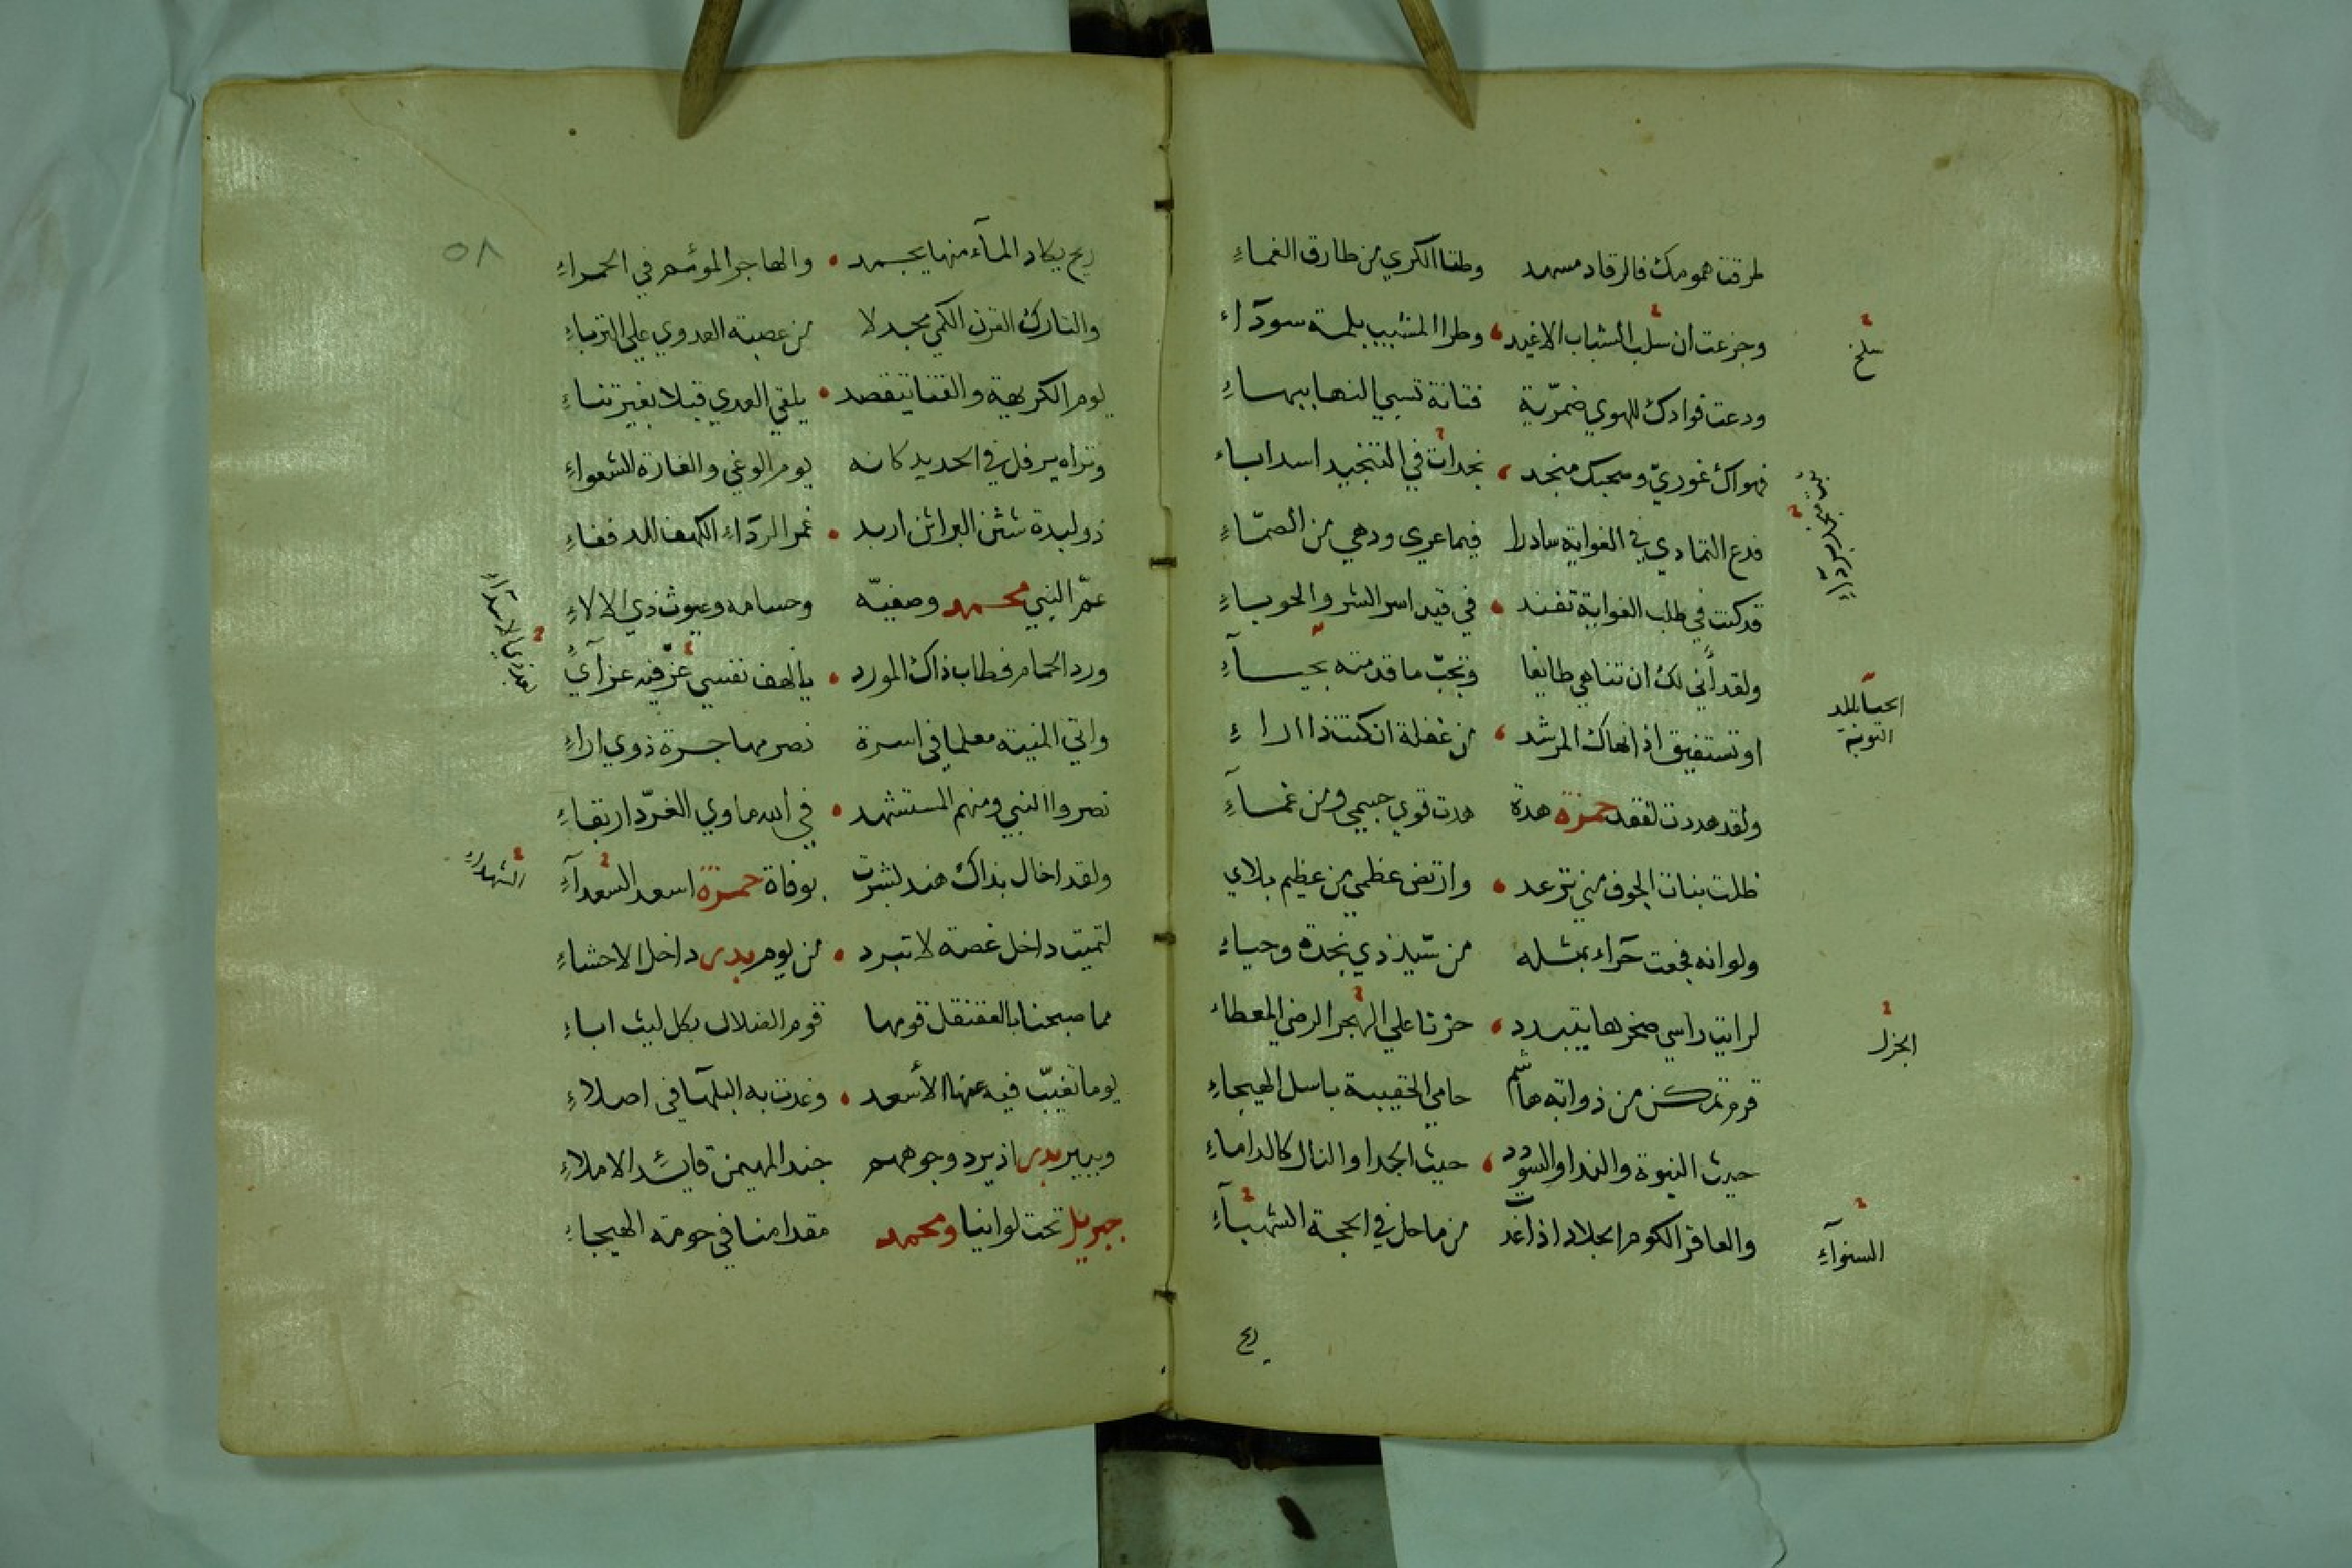 طرقت همومك فالرقاد مسهد وطنا الكري من طارق الغماءِ
وجزعت ان سلب الشباب الاغيد وطرا المشيب بلمة سودآءِ
سلخ
ودعت فوادك للهوي ضمريّة فتانة تسبي النها ببهاءِ
فهواك غوريّ وصحبك منجد نجدات في التنجيد اسد اباء
فدع التمادي في الغواية سادرا فيما عري ودهي من الصمّاءِ
قد كنت في طلب الغواية تفند في قيد اسر الشر والحوباءِ
ولقد أني لك ان تناهي طايعا وتجبّ ما قدمته بحيآءِ
الحيا للمد
التوبة
او تستفيق اذ انهاك المرشد من غفلة ان كنت ذا اراءِ
ولقد هددت لفقد حمزة هدة هدت قوي جسمي ومن غمآءِ
ظلت بنات الجوف مني ترعد وارتض عظمي من عظيم بلاي
ولوانه فجعت حرآء بمثله من سيّد ذي نجدة وحياءِ
لرايت راسي صخرها يتبدد حزنا علي البهر الرضي المعطاء
الجزل
قرم تمكن من ذوابة هاشم حامي الحقيبة باسل الهيجاءِ
حيث النبوة والندا والسودد حيث الجدا والنال كالداماءِ
والعاقر الكوم الجلاد اذا غدت من ماحل في الحجة الشهبآءِ
السنوآءِ
ريح
٥٨
ريح يكاد المآء منها يجمد والهاجر الموئسر في الحمراءِ
والتارك القرن الكمي مجدلا من عصبة العدوي علي التربآءِ
يوم الكريهة والقنا يتقصد يلقي العدي قبلا بغير تناءِ
وتراه يرفل في الحديد كانه يوم الوغي والغارة الشعواءِ
ذو لبدة شثن البراثن اربد غمر الردآء الكهف للدفعاءِ
عمّ النبي محمد وصفيّه وحسامه وغيوث ذي الالاءِ
ورد الحمام فطاب ذاك المورد يالهف نفسي عزّ فيه عزآيِ
واتي المنية معلما في اسرة نصر مهاجرة ذوي اراءِ
نصروا النبي ومنهم المستشهد في الله ماوي الغرّ دار بقاءِ
ولقد اخال بذاك هند لشرت بوفاة حمزة اسعد السعدآءِ
الشهدآءِ
لتميت داخل غصة لا تبرد من يوم بدر داخل الاحشاءِ
مما صبحنا بالعقنقل قومها قوم الضلال بكل ليث اباءِ
يوما تغيّب فيه عنها الأسعد وغدت به البلها في اصلاءِ
وببير بدر اذ يرد وجوههم جند المهيمن قايد الاملاءِ
جبريل تحت لواينا ومحمد مقدامنا في حومة الهيجاءِ